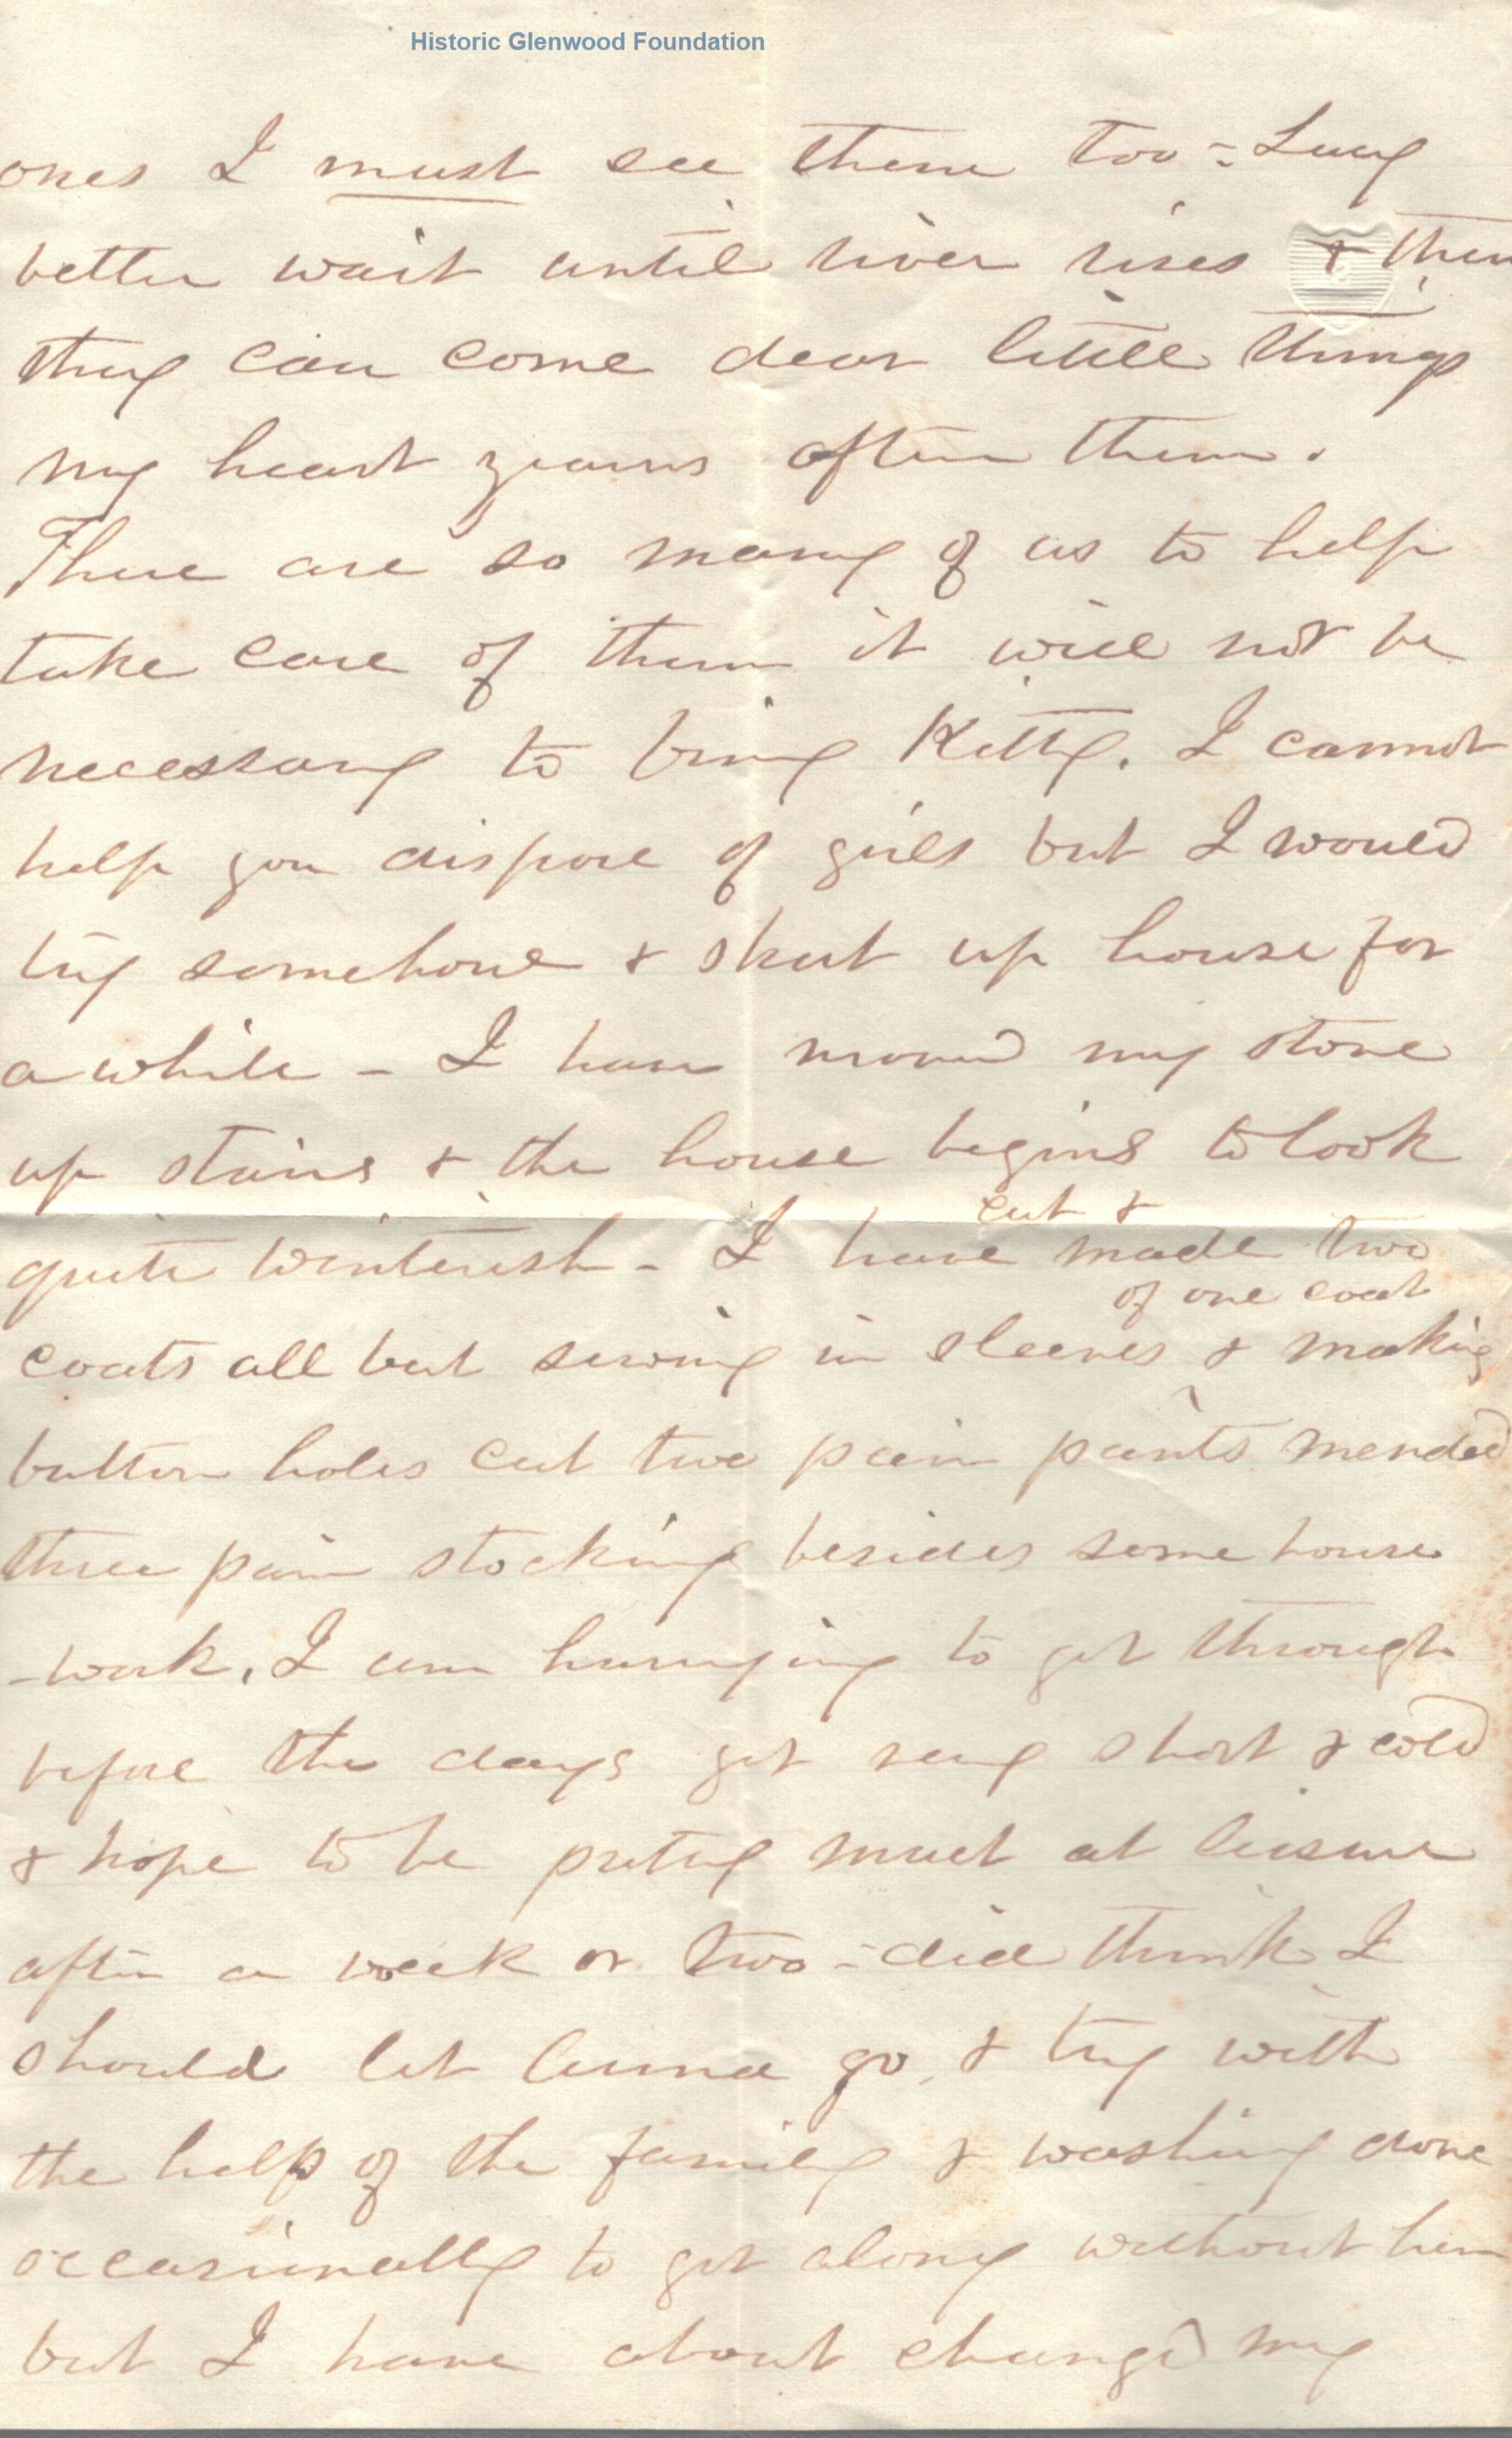 Historic Glenwood Foundation
ones I must see them too - Lucy
better wait until river rises & then
they can come dear little things
my heart yearns after them.
There are so many of us to help
take care of them it will not be
necessary to bring Kitty. I cannot
help you dispose of girls but I would
try somehow & shut up house for
a while - I have moved my stove
up stairs & the house begins to look
cut &
quite winterish - I have made two
of one coat
coats all but sewing in sleeves & making
button holes cut two pair pants mended
three pair stocking besides some house
-work. I am hurrying to get through
before the days get very short & cold
& hope to be pretty much at leisure
after a week or two - did think I
should let Anna go, & try with
the help of the family & washing done
occasionally to get along without her
but I have about changd my